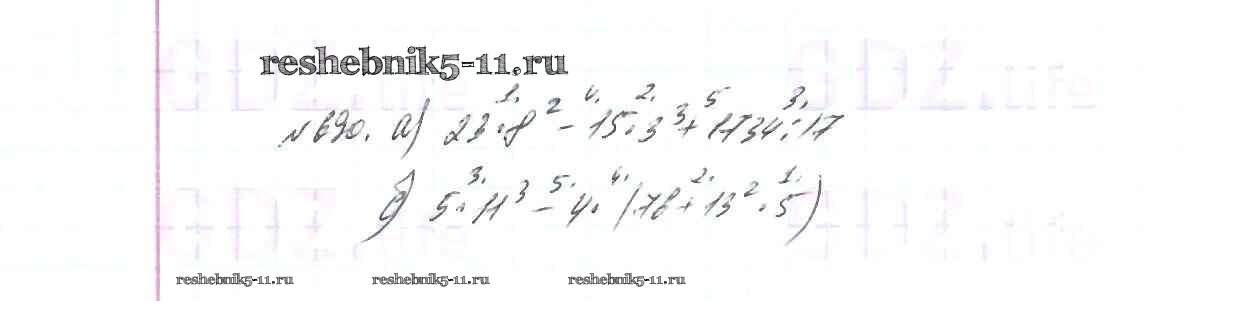 reshebnik5-11.ru
GDZ.life GDZ.life
1. 4. 2. 5 3.
№690. а) 23·8² - 15·3³ + 1734:17
3. 5. 4. 2. 1.
б) 5·11³ - 4·(78 + 13²·5)
GDZ.life GDZ.life
reshebnik5-11.ru reshebnik5-11.ru reshebnik5-11.ru